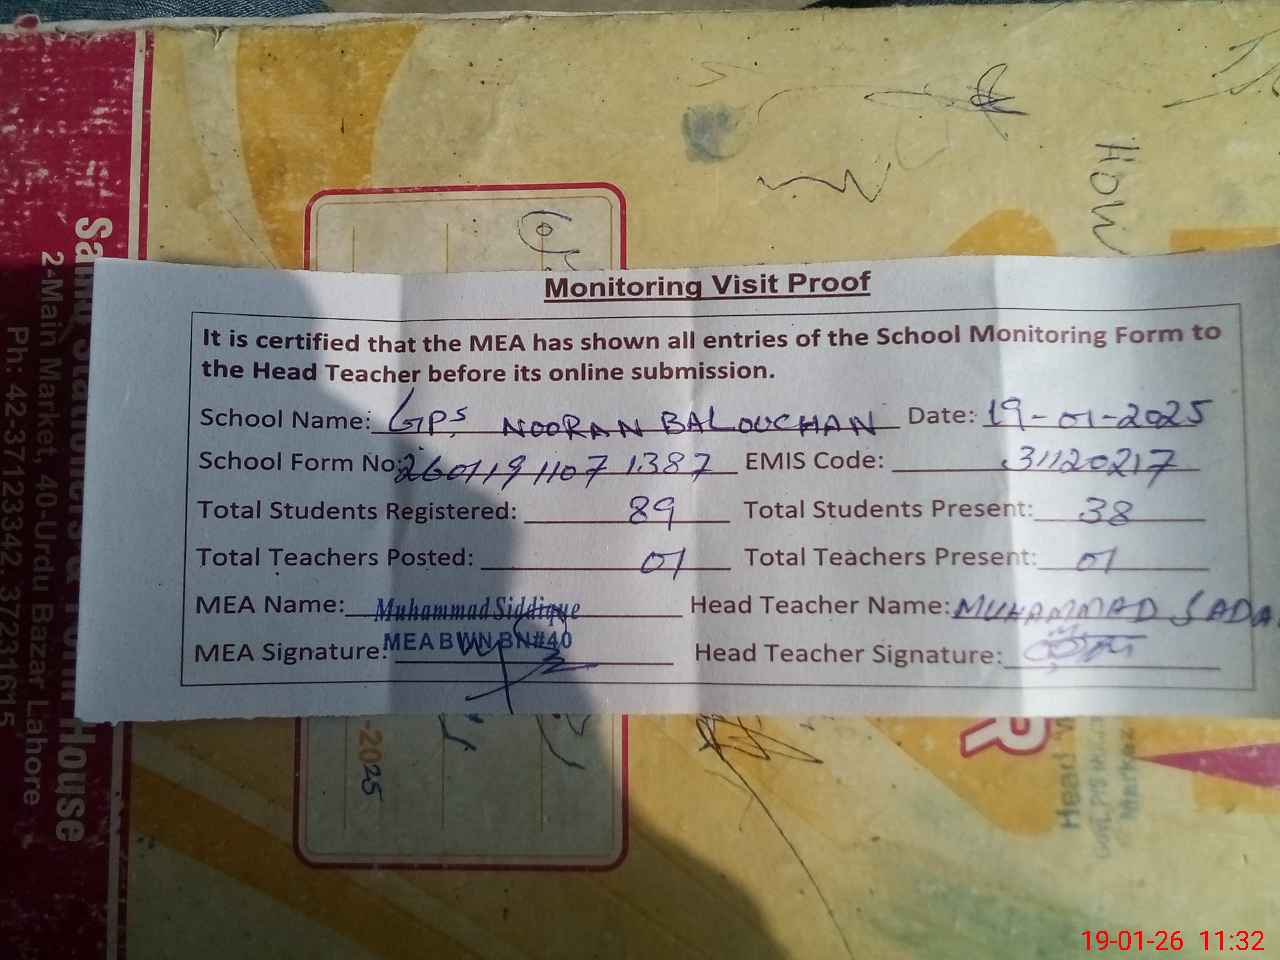 Monitoring Visit Proof
It is certified that the MEA has shown all entries of the School Monitoring Form to
the Head Teacher before its online submission.
School Name: GPS NOORAN BALOUCHAN Date: 19-01-2025
School Form No: 260119 1107 1387 EMIS Code: 31120217
Total Students Registered: 89 Total Students Present: 38
Total Teachers Posted: 01 Total Teachers Present: 01
MEA Name: Muhammad Siddique Head Teacher Name: MUHAMMAD SADA
MEA Signature: MEA BWN BN#40 Head Teacher Signature:
House
2-Main Market, 40-Urdu Bazar Lahore
Ph: 42-37123342, 37231615
-2025
Head
Markaz
19-01-26 11:32